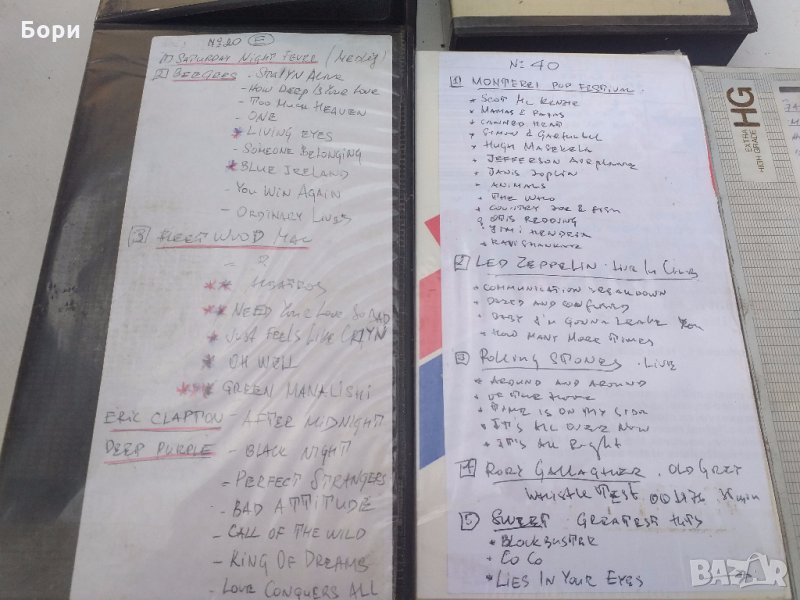 Бори
№20 E
1) SATURDAY NIGHT FEVER
2 BEE GEES - STALYN ALIVE
- HOW DEEP IS YOUR LOVE
- TOO MUCH HEAVEN
- ONE
* LIVING EYES
- SOMEONE BELONGING
* BLUE IRELAND
- YOU WIN AGAIN
- ORDINARY LIVES
3 FLEET WOOD MAC
** NEED YOUR LOVE SO BAD
* JUST FEELS LIKE
* OH WELL
*** GREEN MANALISHI
ERIC CLAPTON - AFTER MIDNIGHT
DEEP PURPLE - BLACK NIGHT
= PERFECT STRANGERS
- BAD ATTITUDE
- CALL OF THE WILD
- KING OF DREAMS
- LOVE CONQUERS ALL
№ 40
1 MONTEREI POP FESTIVAL.
* SCOT MC KENZIE
* MAMAS & PAPAS
* CANNED HEAD
* SIMON & GARFUNKEL
* HUGH MASEKELA
* JEFFERSON AIRPLANE
* JANIS JOPLIN
* ANIMALS
* THE WHO
* COUNTRY JOE & FISH
OTIS REDDING
* JIMI HENDRIX
* RAVISHANKAR
2 LED ZEPPELIN. LIVE IN
* COMMUNICATION BREAKDOWN
* DAZED AND CONFUSED
* BABY I'M GONNA LEAVE YOU
* HOW MANY MORE TIMES
3 ROLLING STONES. LIVE
* AROUND AND AROUND
* OF THE HOOK
* TIME IS ON MY SIDE
* IT'S ALL OVER NOW
* IT'S ALL RIGHT
4 RORY GALLAGHER. OLD GREY
WHISTLE TEST
5 SWEET GREATEST HITS
* BLOCKBUSTER
* CO CO
* LIES IN YOUR EYES
EXTRA
HIGH GRADE
HG
BAZAR